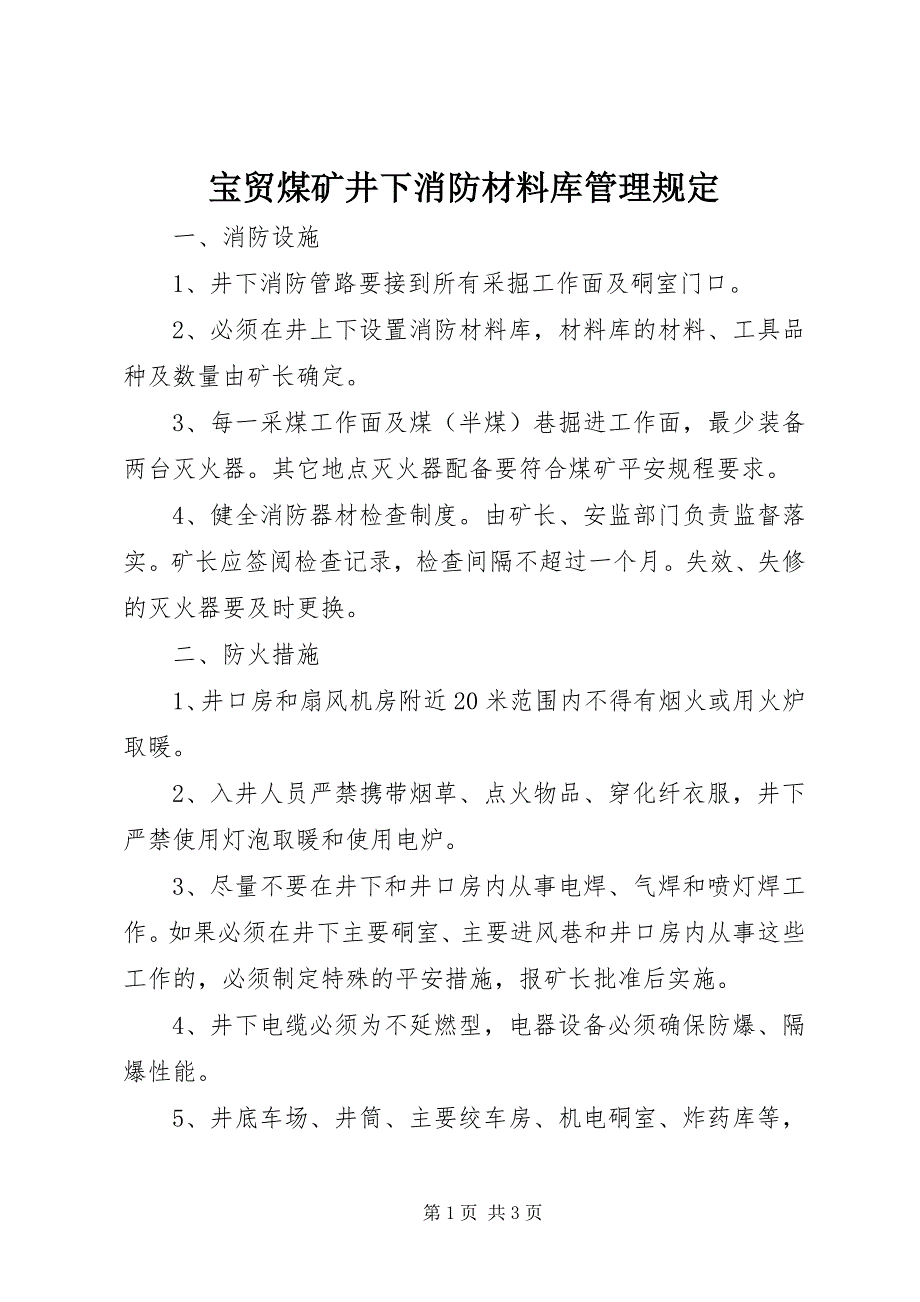 宝贸煤矿井下消防材料库管理规定
一、消防设施
1、井下消防管路要接到所有采掘工作面及硐室门口。
2、必须在井上下设置消防材料库，材料库的材料、工具品
种及数量由矿长确定。
3、每一采煤工作面及煤（半煤）巷掘进工作面，最少装备
两台灭火器。其它地点灭火器配备要符合煤矿平安规程要求。
4、健全消防器材检查制度。由矿长、安监部门负责监督落
实。矿长应签阅检查记录，检查间隔不超过一个月。失效、失修
的灭火器要及时更换。
二、防火措施
1、井口房和扇风机房附近 20 米范围内不得有烟火或用火炉
取暖。
2、入井人员严禁携带烟草、点火物品、穿化纤衣服，井下
严禁使用灯泡取暖和使用电炉。
3、尽量不要在井下和井口房内从事电焊、气焊和喷灯焊工
作。如果必须在井下主要硐室、主要进风巷和井口房内从事这些
工作的，必须制定特殊的平安措施，报矿长批准后实施。
4、井下电缆必须为不延燃型，电器设备必须确保防爆、隔
爆性能。
5、井底车场、井筒、主要绞车房、机电硐室、炸药库等，
第 1 页 共 3 页